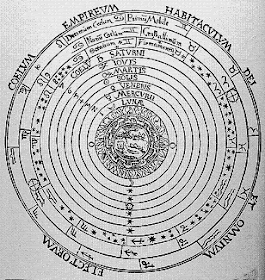 COELVM EMPIREVM HABITACVLVM DEI
ET OMNIVM ELECTORVM
Decimum Coelum Primū Mobile
Nonū Coelum Cristallinum
Firmamentū
SATVRNI
IOVIS
MARTIS
SOLIS
VENERIS
MERCVRII
LVNÆ